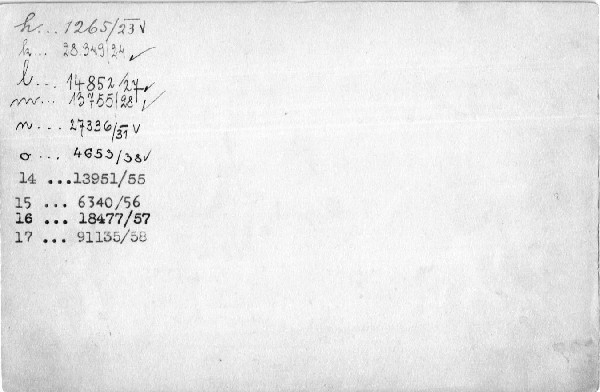 h... 1265/23 v
k... 28.349/24 ✓
l... 14852/27 ✓
m... 13755/28 ✓
n... 27336/31 v
o... 4653/38 v
14 ...13951/55
15 ... 6340/56
16 ... 18477/57
17 ... 91135/58